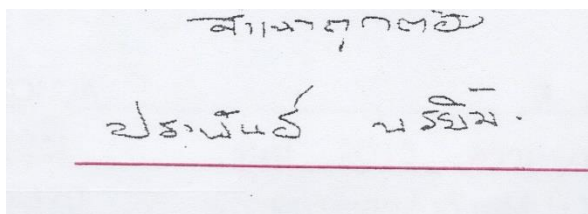 สำเนาถูกต้อง
ประพันธ์